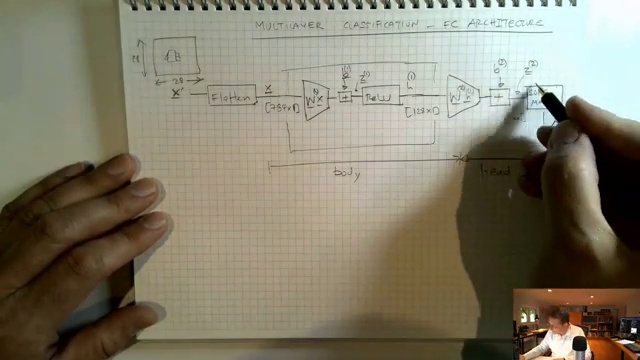 MULTILAYER CLASSIFICATION - FC ARCHITECTURE
28
28
x'
Flatten
x
[784x1]
W⁽¹⁾x
b⁽¹⁾
+
z⁽¹⁾
ReLU
h⁽¹⁾
[128x1]
W⁽²⁾h⁽¹⁾
b⁽²⁾
+
z⁽²⁾
body
head